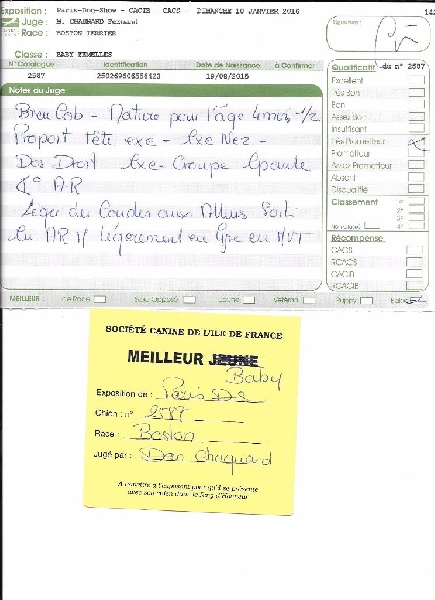 Exposition : Paris-Dog-Show - CACIB CACS DIMANCHE 10 JANVIER 2016
Juge : M. Fernand
Race : BOSTON TERRIER
Signature :
Classe : BABY FEMELLES
N° Catalogue Identification Date de Naissance à Confirmer
2587 250269606556423 19/08/2015
Notes du Juge
Bien Cob - Mature pour l'âge 4 mois 1/2
Proport tête exc - Exc Nez -
Dos Droit Exc - Croupe Epaule
AR
Léger du Coudes aux Allures
en AR Légèrement en MVT
Qualificatif du n° 2587
Excellent
Très Bon
Bon
Assez Bon
Insuffisant
Très Prometteur
Prometteur
Assez Prometteur
Absent
Disqualifié
Classement 1er
2e
3e
4e
Récompense
CACS
RCACS
CACIB
RCACIB
MEILLEUR : de Race Sexe Opposé Jeune Vétéran Puppy Baby
SOCIÉTÉ CANINE DE L'ILE DE FRANCE
MEILLEUR JEUNE
Baby
Exposition de : Paris DS
Chien : n° 2587
Race : Boston
Jugé par :
A remettre à l'exposant pour qu'il se présente
avec son chien dans le Ring d'Honneur